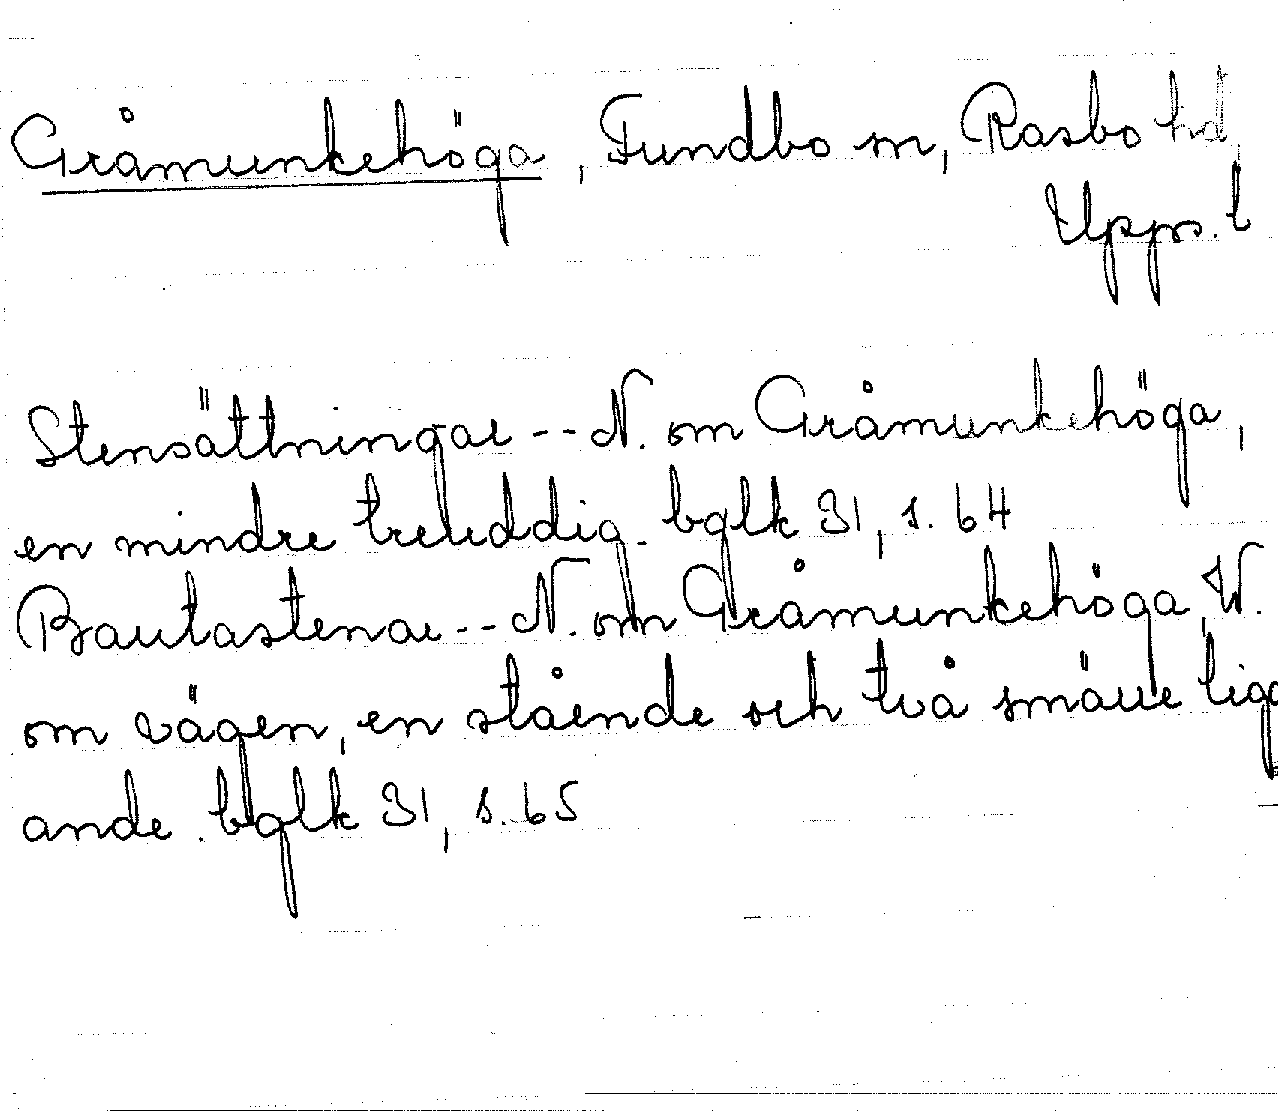 Gråmunkehöga, Fundbo sn, Rasbo hd,
Upps. l
Stensättningar -- N. om Gråmunkehöga,
en mindre treuddig. bglk 31, s. 64
Bautastenar -- N. om Gråmunkehöga, W.
om vägen, en stående och två smärre ligg
ande. bglk 31, s. 65